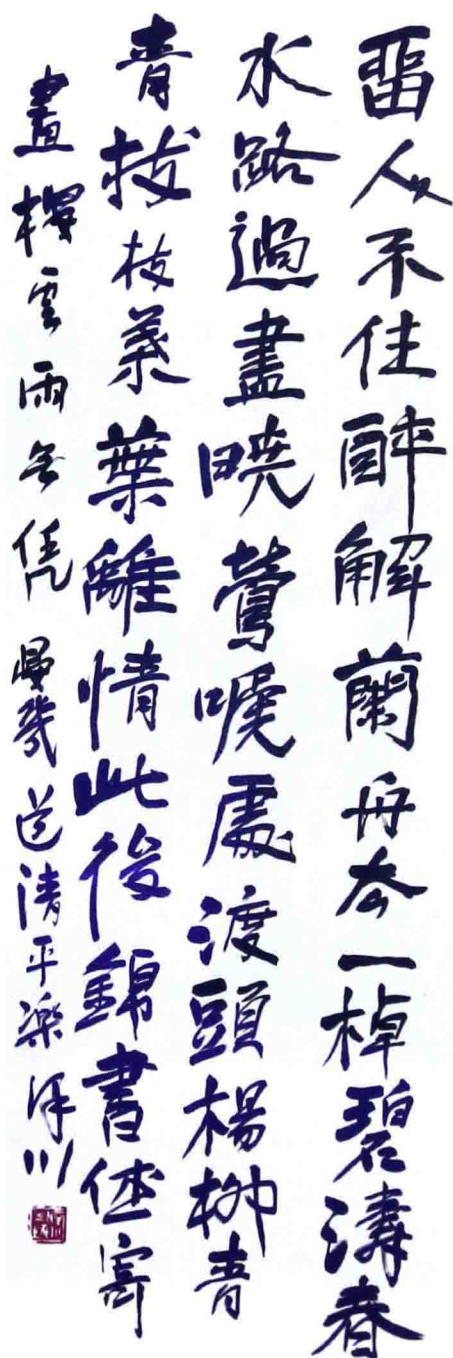 畱人不住醉解蘭舟去一棹碧濤春
水路過盡暁鶯嗁處渡頭楊柳青
青枝枝葉葉離情此後錦書休寄
畫樓雲雨無凭 晏幾道清平樂 川